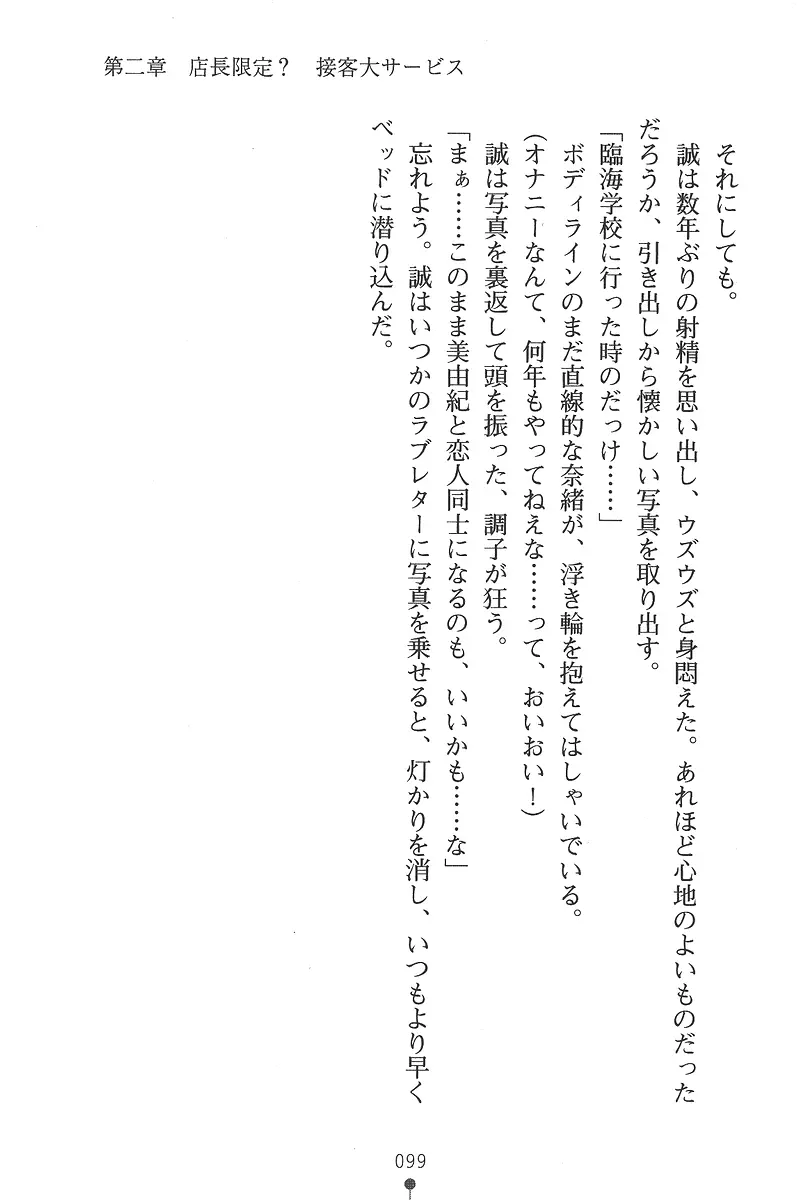 第二章　店長限定？　接客大サービス
それにしても。
誠は数年ぶりの射精を思い出し、ウズウズと身悶えた。あれほど心地のよいものだった
だろうか、引き出しから懐かしい写真を取り出す。
「臨海学校に行った時のだっけ……」
ボディラインのまだ直線的な奈緒が、浮き輪を抱えてはしゃいでいる。
（オナニーなんて、何年もやってねえな……って、おいおい！）
誠は写真を裏返して頭を振った、調子が狂う。
「まぁ……このまま美由紀と恋人同士になるのも、いいかも……な」
忘れよう。誠はいつかのラブレターに写真を乗せると、灯かりを消し、いつもより早く
ベッドに潜り込んだ。
099